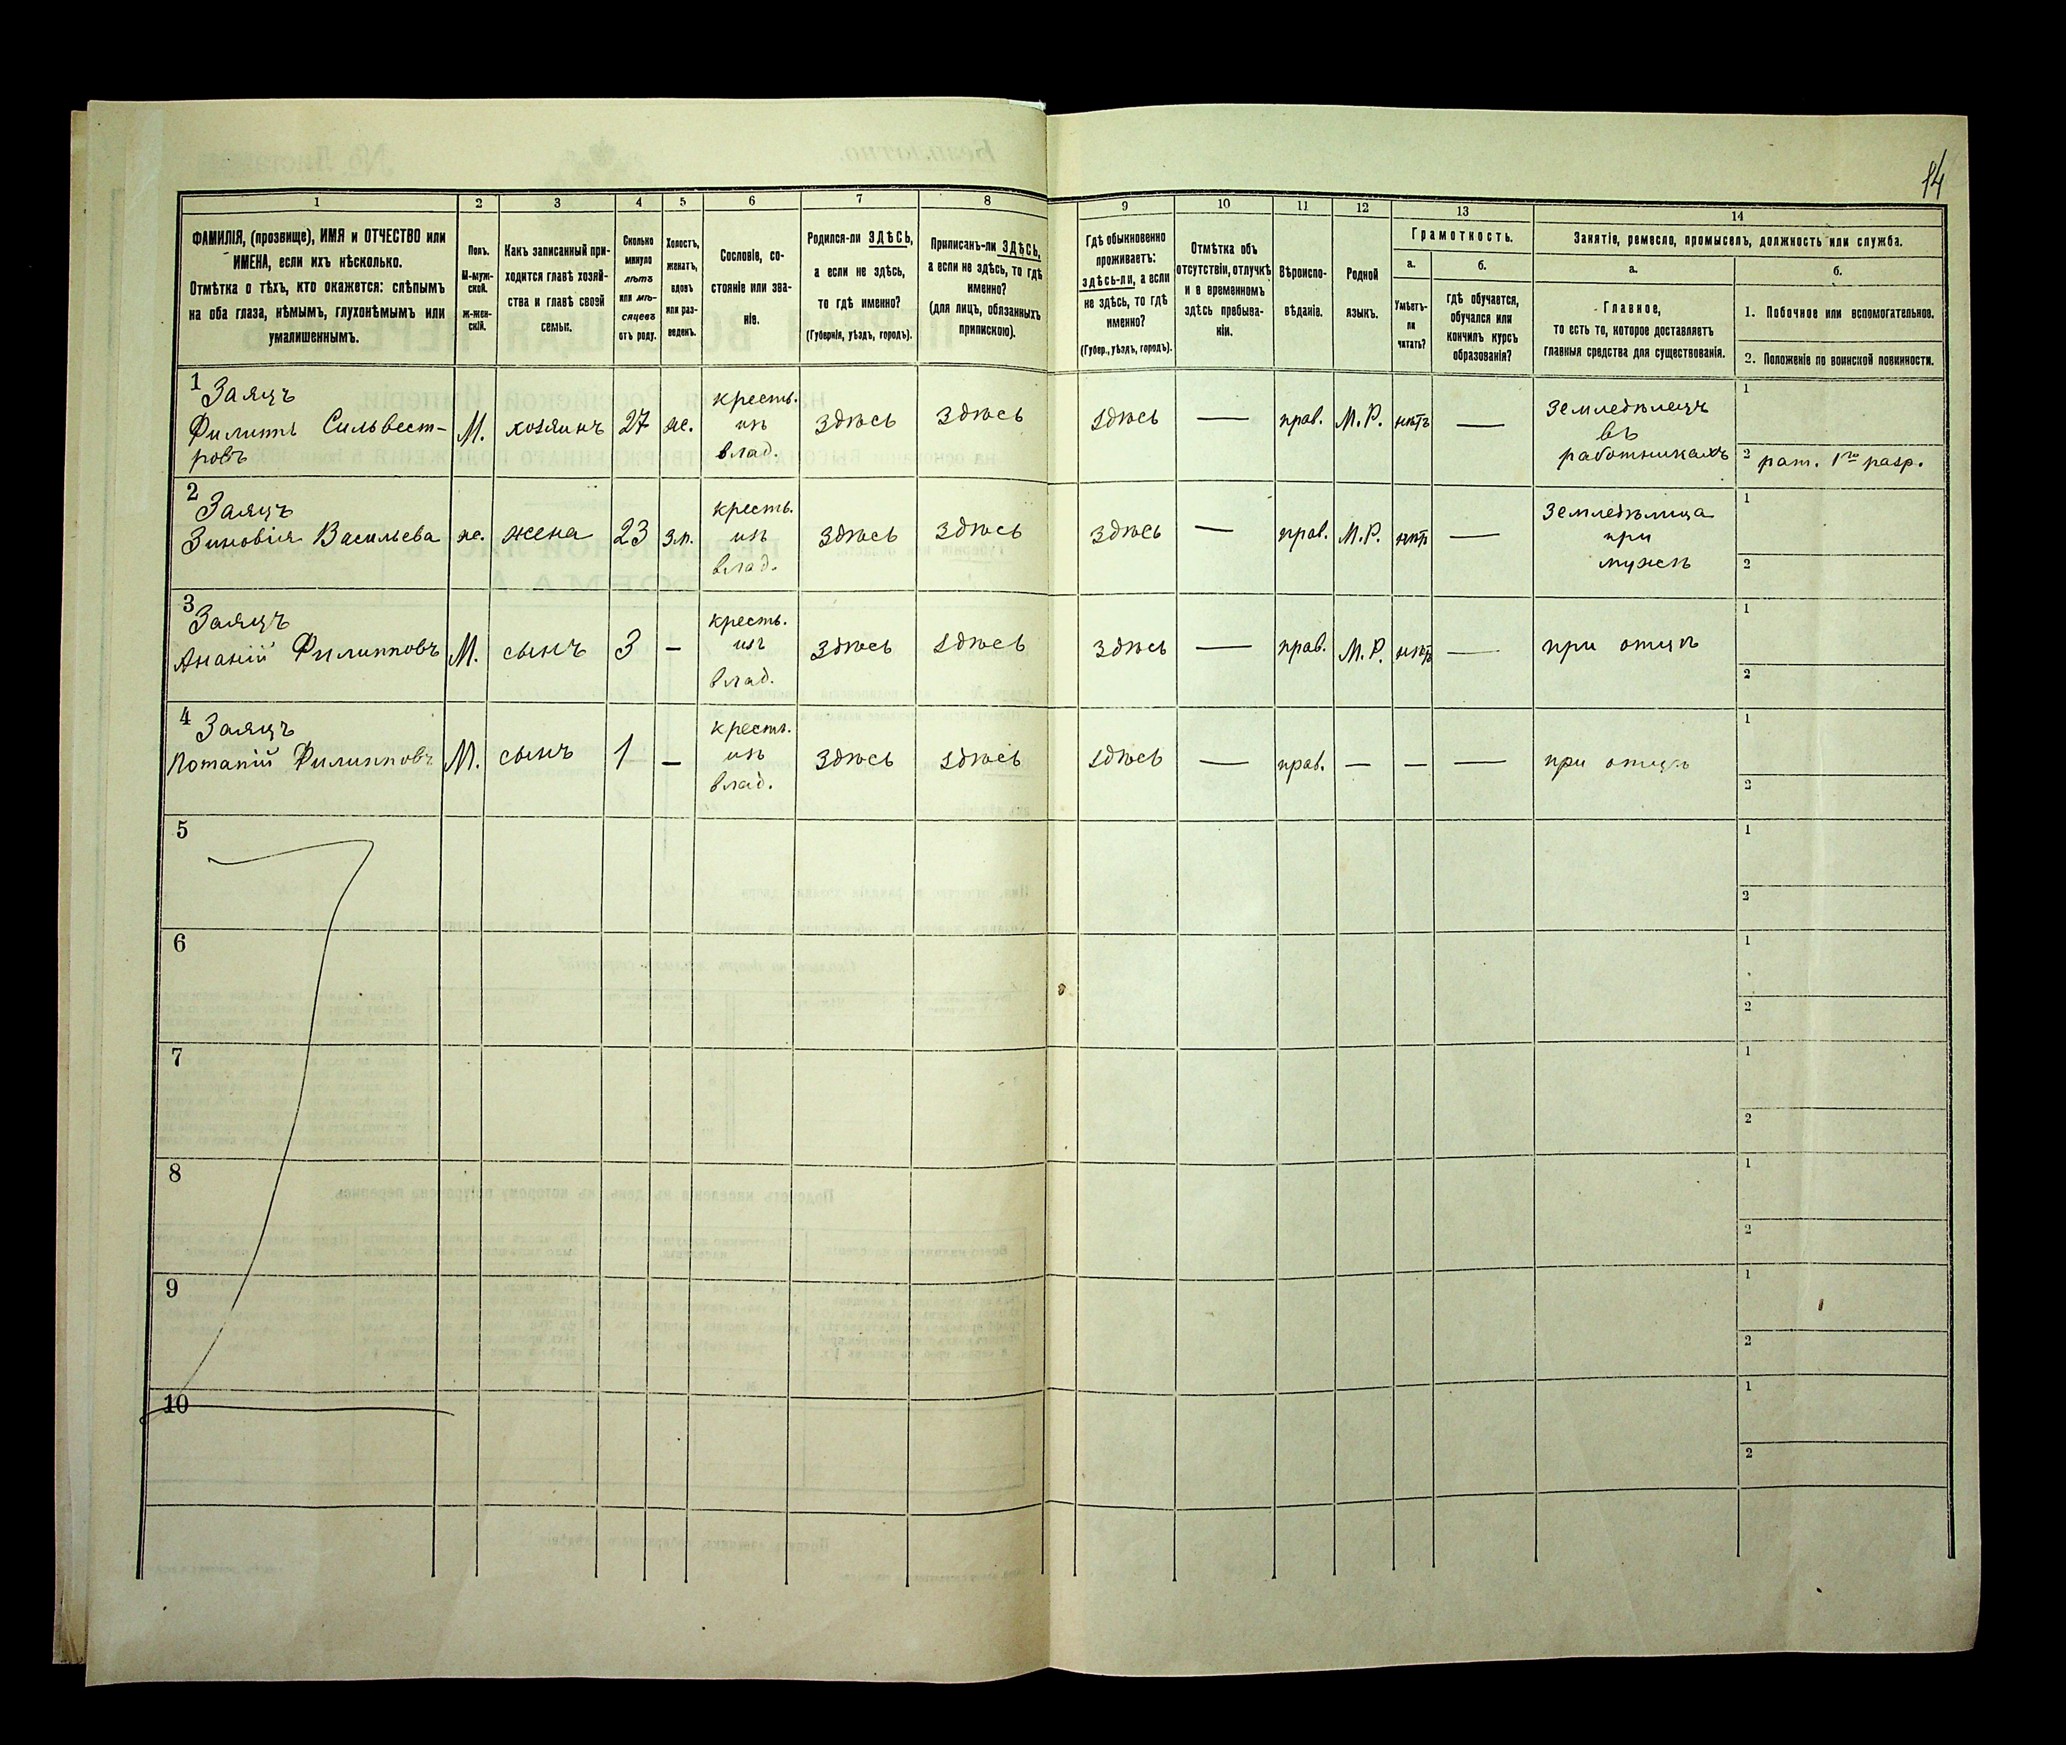 14
1 2 3 4 5 6 7 8 9 10 11 12 13 14
ФАМИЛІЯ, (прозвище), ИМЯ и ОТЧЕСТВО или
ИМЕНА, если ихъ нѣсколько.
Отмѣтка о тѣхъ, кто окажется: слѣпымъ
на оба глаза, нѣмымъ, глухонѣмымъ или
умалишеннымъ.
Полъ.
М-муж-
ской.
Ж-жен-
скій.
Какъ записанный при-
ходится главѣ хозяй-
ства и главѣ своей
семьи.
Сколько
минуло
лѣтъ
или мѣ-
сяцевъ
отъ роду.
Холостъ,
женатъ,
вдовъ
или раз-
веденъ.
Сословіе, со-
стояніе или зва-
ніе.
Родился-ли ЗДѢСЬ,
а если не здѣсь,
то гдѣ именно?
(Губернія, уѣздъ, городъ).
Приписанъ-ли ЗДѢСЬ,
а если не здѣсь, то гдѣ
именно?
(для лицъ, обязанныхъ
припискою).
Гдѣ обыкновенно
проживаетъ:
здѣсь-ли, а если
не здѣсь, то гдѣ
именно?
(Губер., уѣздъ, городъ).
Отмѣтка объ
отсутствіи, отлучкѣ
и о временномъ
здѣсь пребыва-
ніи.
Вѣроиспо-
вѣданіе.
Родной
языкъ.
Грамотность.
а.
Умѣетъ-
ли
читать?
б.
Гдѣ обучается,
обучался или
кончилъ курсъ
образованія?
Занятіе, ремесло, промыселъ, должность или служба.
а.
Главное,
то есть то, которое доставляетъ
главныя средства для существованія.
б.
1. Побочное или вспомогательное.
2. Положеніе по воинской повинности.
1 Заяцъ
Филиппъ Сильвест-
ровъ
М. хозяинъ 27 ж.
кресть.
изъ
влад.
здѣсь здѣсь здѣсь — прав. М.Р. нѣтъ —
Земледѣлецъ
въ
работникахъ
1
2 рат. 1го разр.
2 Заяцъ
Зиновія Васильева
ж. жена 23 з.
кресть.
изъ
влад.
здѣсь здѣсь здѣсь — прав. М.Р. нѣтъ —
Земледѣлица
при
мужѣ
1
2
3 Заяцъ
Ананій Филипповъ
М. сынъ 3 —
кресть.
изъ
влад.
здѣсь здѣсь здѣсь — прав. М.Р. нѣтъ — при отцѣ
1
2
4 Заяцъ
Потапій Филипповъ
М. сынъ 1 —
кресть.
изъ
влад.
здѣсь здѣсь здѣсь — прав. — — — при отцѣ
1
2
5
1
2
6
1
2
7
1
2
8
1
2
9
1
2
10
1
2